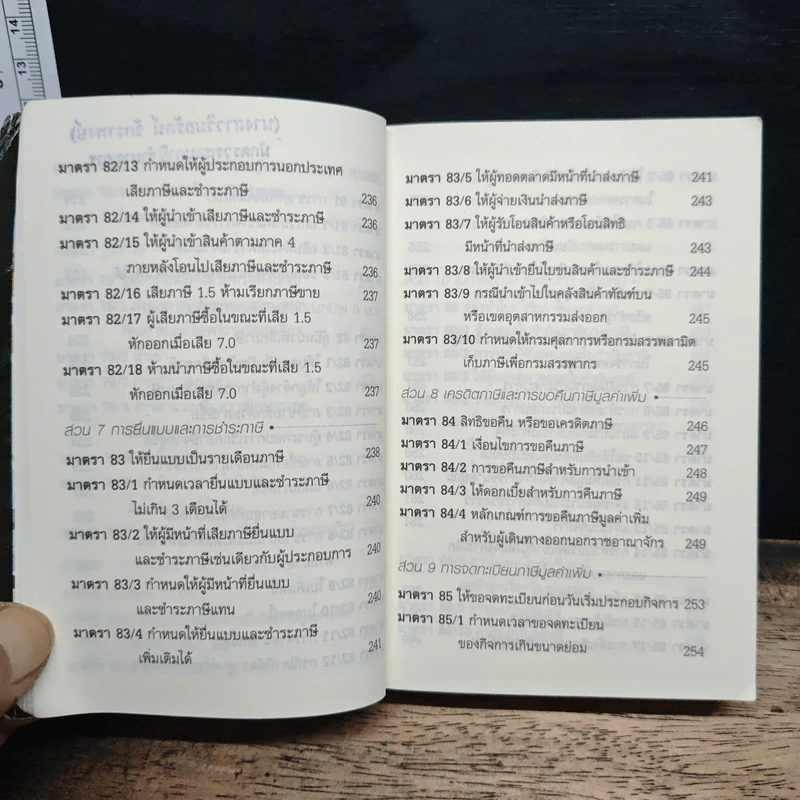 มาตรา 82/13 กำหนดให้ผู้ประกอบการนอกประเทศ
เสียภาษีและชำระภาษี 236
มาตรา 82/14 ให้ผู้นำเข้าเสียภาษีและชำระภาษี 236
มาตรา 82/15 ให้ผู้นำเข้าสินค้าตามภาค 4
ภายหลังโอนไปเสียภาษีและชำระภาษี 236
มาตรา 82/16 เสียภาษี 1.5 ห้ามเรียกภาษีขาย 237
มาตรา 82/17 ผู้เสียภาษีซื้อในขณะที่เสีย 1.5
หักออกเมื่อเสีย 7.0 237
มาตรา 82/18 ห้ามนำภาษีซื้อในขณะที่เสีย 1.5
หักออกเมื่อเสีย 7.0 237
ส่วน 7 การยื่นแบบและการชำระภาษี
มาตรา 83 ให้ยื่นแบบเป็นรายเดือนภาษี 238
มาตรา 83/1 กำหนดเวลายื่นแบบและชำระภาษี
ไม่เกิน 3 เดือนได้ 240
มาตรา 83/2 ให้ผู้มีหน้าที่เสียภาษียื่นแบบ
และชำระภาษีเช่นเดียวกับผู้ประกอบการ 240
มาตรา 83/3 กำหนดให้ผู้มีหน้าที่ยื่นแบบ
และชำระภาษีแทน 240
มาตรา 83/4 กำหนดให้ยื่นแบบและชำระภาษี
เพิ่มเติมได้ 241
มาตรา 83/5 ให้ผู้ทอดตลาดมีหน้าที่นำส่งภาษี 241
มาตรา 83/6 ให้ผู้จ่ายเงินนำส่งภาษี 243
มาตรา 83/7 ให้ผู้รับโอนสินค้าหรือโอนสิทธิ
มีหน้าที่นำส่งภาษี 243
มาตรา 83/8 ให้ผู้นำเข้ายื่นใบขนสินค้าและชำระภาษี 244
มาตรา 83/9 กรณีนำเข้าไปในคลังสินค้าทัณฑ์บน
หรือเขตอุตสาหกรรมส่งออก 245
มาตรา 83/10 กำหนดให้กรมศุลกากรหรือกรมสรรพสามิต
เก็บภาษีเพื่อกรมสรรพากร 245
ส่วน 8 เครดิตภาษีและการขอคืนภาษีมูลค่าเพิ่ม
มาตรา 84 สิทธิขอคืน หรือขอเครดิตภาษี 246
มาตรา 84/1 เงื่อนไขการขอคืนภาษี 247
มาตรา 84/2 การขอคืนภาษีสำหรับการนำเข้า 248
มาตรา 84/3 ให้ดอกเบี้ยสำหรับการคืนภาษี 249
มาตรา 84/4 หลักเกณฑ์การขอคืนภาษีมูลค่าเพิ่ม
สำหรับผู้เดินทางออกนอกราชอาณาจักร 249
ส่วน 9 การจดทะเบียนภาษีมูลค่าเพิ่ม
มาตรา 85 ให้ขอจดทะเบียนก่อนวันเริ่มประกอบกิจการ 253
มาตรา 85/1 กำหนดเวลาขอจดทะเบียน
ของกิจการเกินขนาดย่อม 254
13
14